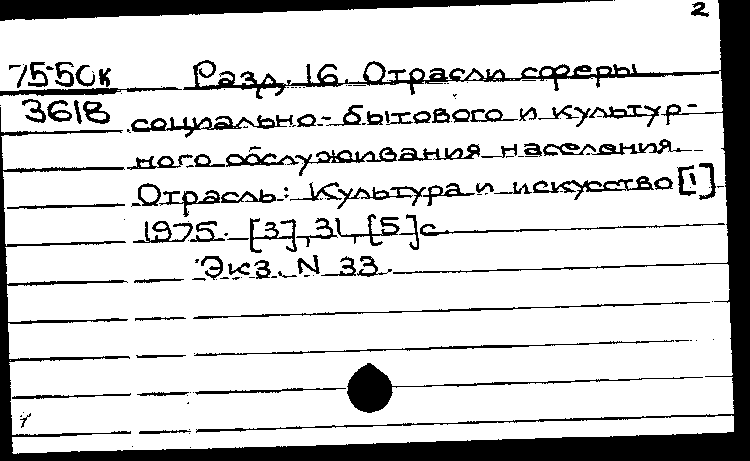 2
75-50к Разд. 16. Отрасли сферы
3618 социально-бытового и культур-
ного обслуживания населения.
Отрасль: Культура и искусство [1]
1975. [3], 31, [5] с.
Экз. N 33.